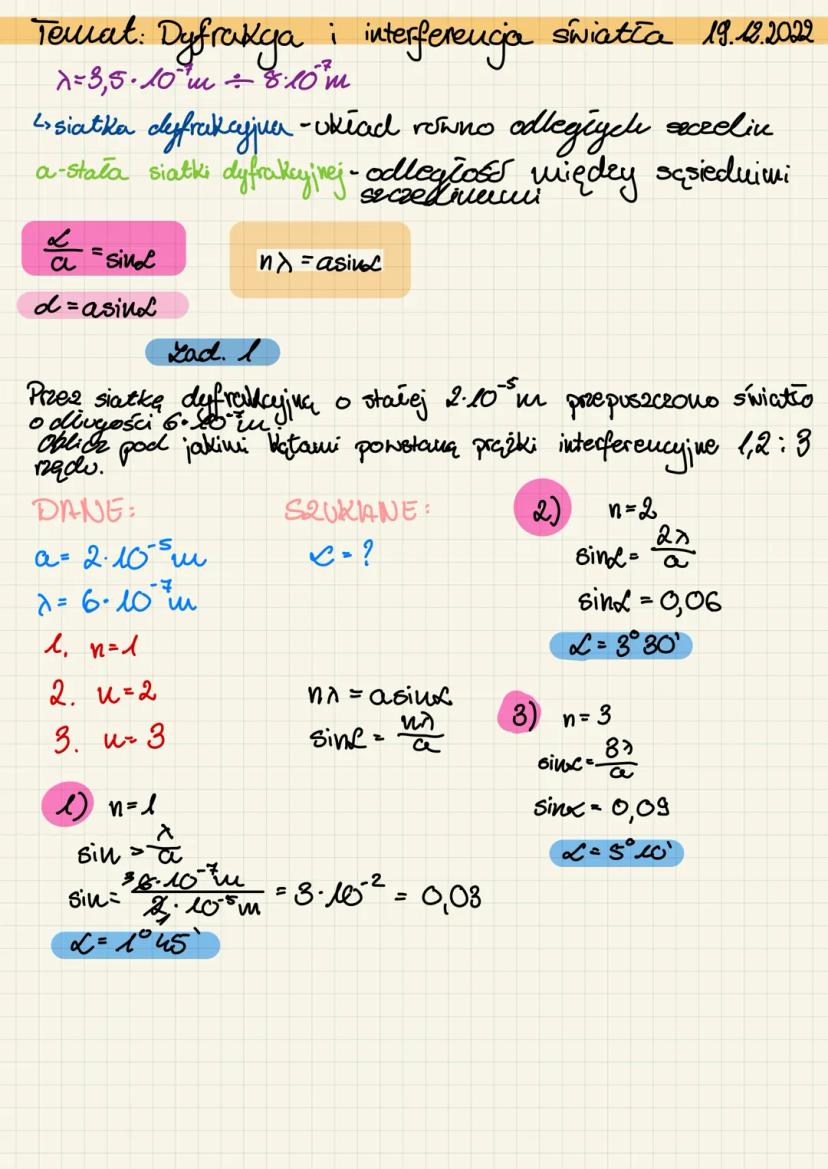 Temat: Dyfrakcja i interferencja światła 19.12.2022
λ=3,5·10⁻⁷m ÷ 8·10⁻⁷m
↳siatka dyfrakcyjna - układ równo odległych szczelin
a-stała siatki dyfrakcyjnej - odległość między sąsiednimi
szczelinami
α/a = sinα
nλ = asinα
d = asinα
Zad. 1
Przez siatkę dyfrakcyjną o stałej 2·10⁻⁵m przepuszczono światło
o długości 6·10⁻⁷m.
Oblicz pod jakimi kątami powstaną prążki interferencyjne 1,2 i 3
rzędu.
DANE: SZUKANE:
a= 2·10⁻⁵m α=?
λ= 6·10⁻⁷m
1. n=1
2. n=2
3. n=3
nλ = asinα
sinα = nλ/a
1) n=1
sin = λ/a
sin = ³6·10⁻⁷m / 2₁·10⁻⁵m = 3·10⁻² = 0,03
α= 1°45'
2) n=2
sinα= 2λ/a
sinα = 0,06
α= 3°30'
3) n=3
sinα= 3λ/a
sinα= 0,09
α= 5°10'